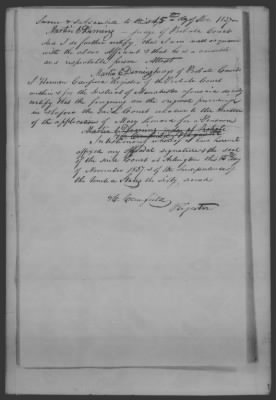 Sworn & subscribed to this 15th day of Nov. 1837
Martin C Deming - Judge of Probate Court
And I do further certify, that I am well acquainted
with the above affiant & that he is a credible
and respectable person Attest
Martin C Deming Judge of Probate Court
I Harmon Canfield Register of the Probate Court
within & for the District of Manchester Vermont do hereby
certify that the foregoing are the original proceedings
in & before the said Court relative to the matter
of the application of Mary for a Pension
In testimony whereof I have hereunto
affixed my official signature & the seal
of the said Court at Arlington this 15 day
of November 1837 & of the Independence of
the United States the sixty second
H. Canfield
Register